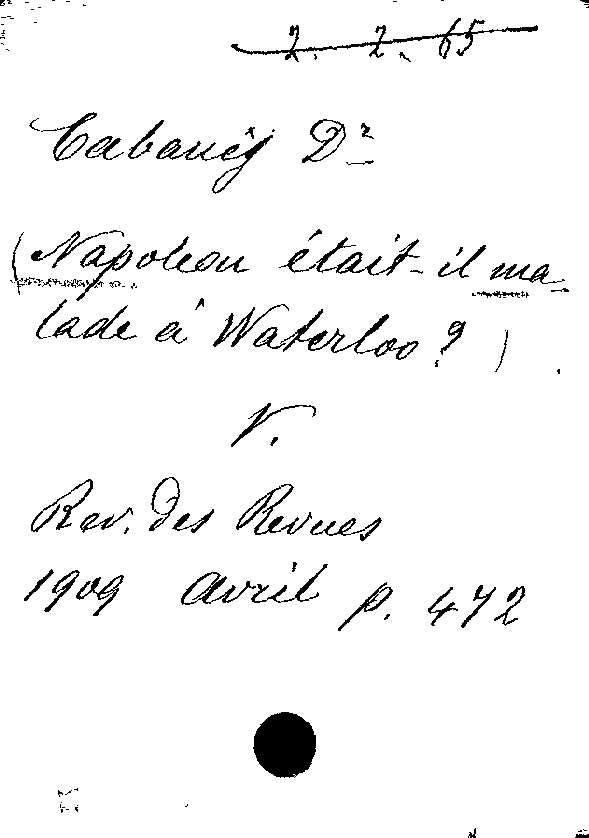 2. 2. 65
Cabanès Dr
(Napoléon était-il ma-
lade à Waterloo ? )
V.
Rev. des Revues
1909 Avril p. 472